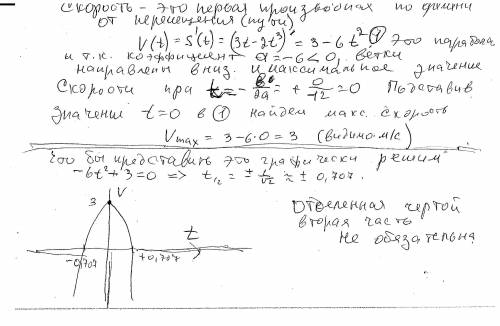 Скорость - это первая производная по времени
от перемещения (пути)
V(t) = S'(t) = (3t-2t³)' = 3-6t² ① Это парабола
и т.к. коэффициент a=-6<0, ветки
направлены вниз. И максимальное значение
Скорости при t=-в/2a = +0/-12 = 0 Подставив
значение t=0 в ① найдем макс. скорость
Vmax = 3-6·0 = 3 (видимо м/с)
Что бы представить это графически решим
-6t²+3=0 => t₁,₂ = ± 1/√2 ≈ ± 0,707.
V
3
t
-0,707
+0,707
Отделенная чертой
вторая часть
не обязательна